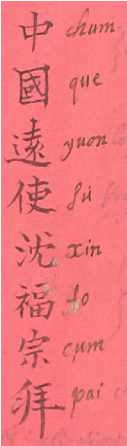 中國遠使沈福宗拜
chum
que
yuon
sú
xin
fo
çum
pai